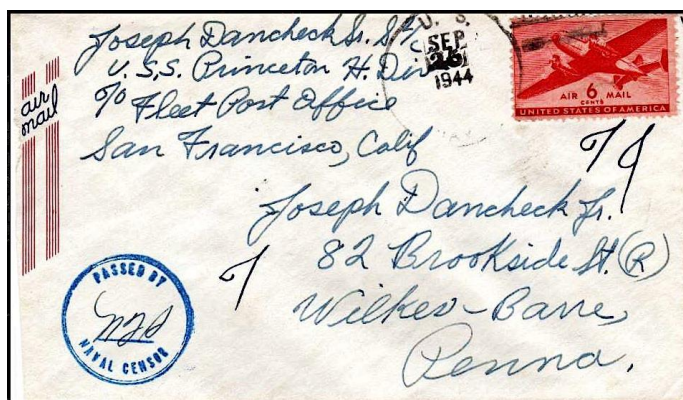 Joseph Dancheck Sr. S 1/c
U.S.S. Princeton H. Div
c/o Fleet Post Office
San Francisco, Calif
air
mail
U. S.
SEP
1944
AIR 6 MAIL
CENTS
UNITED STATES OF AMERICA
Joseph Dancheck Jr.
82 Brookside St. (R)
Wilkes-Barre,
Penna.
PASSED BY
NAVAL CENSOR